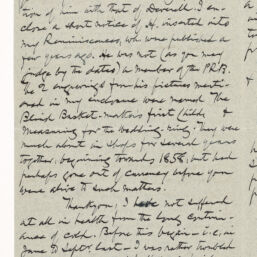 tion of him with that of Deverell. I en-
close a short notice of H. inserted into
my Reminiscences, wh were published a
few years ago. He was not (as you may
judge by the dates) a member of the P.R.B.
The 2 engravings from his pictures menti-
oned in my enclosure were named The
Blind Basket-maker's first Child &
Measuring for the Wedding-ring. They were
much about in shops for several years
together, beginning towards 1856, but had
perhaps gone out of currency before you
were alive to such matters.
Thankyou, I have not suffered
at all in health from the long contin-
uance of cold. Before this began - i.e, in
June to Septr last - I was rather troubled